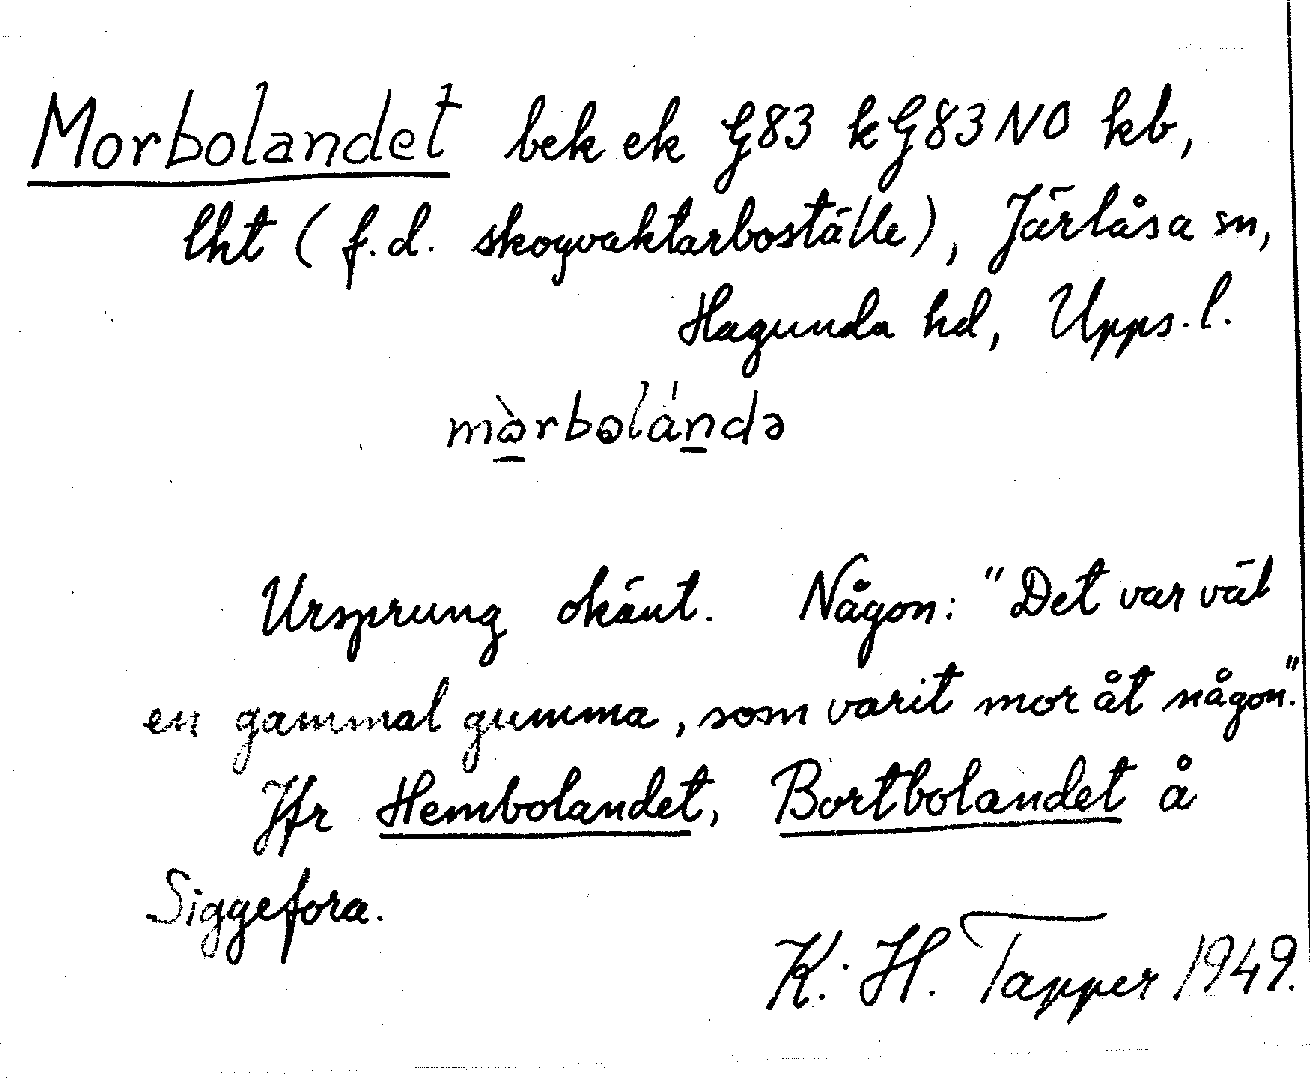 Morbolandet bek ek G83 kG83NO kb,
lht (f.d. skogvaktarboställe), Järlåsa sn,
Hagunda hd, Upps. l.
mòrbolándə
Ursprung okänt. Någon: "Det var väl
en gammal gumma, som varit mor åt någon."
Jfr Hembolandet, Bortbolandet å
Siggefora.
K. H. Tapper 1949.